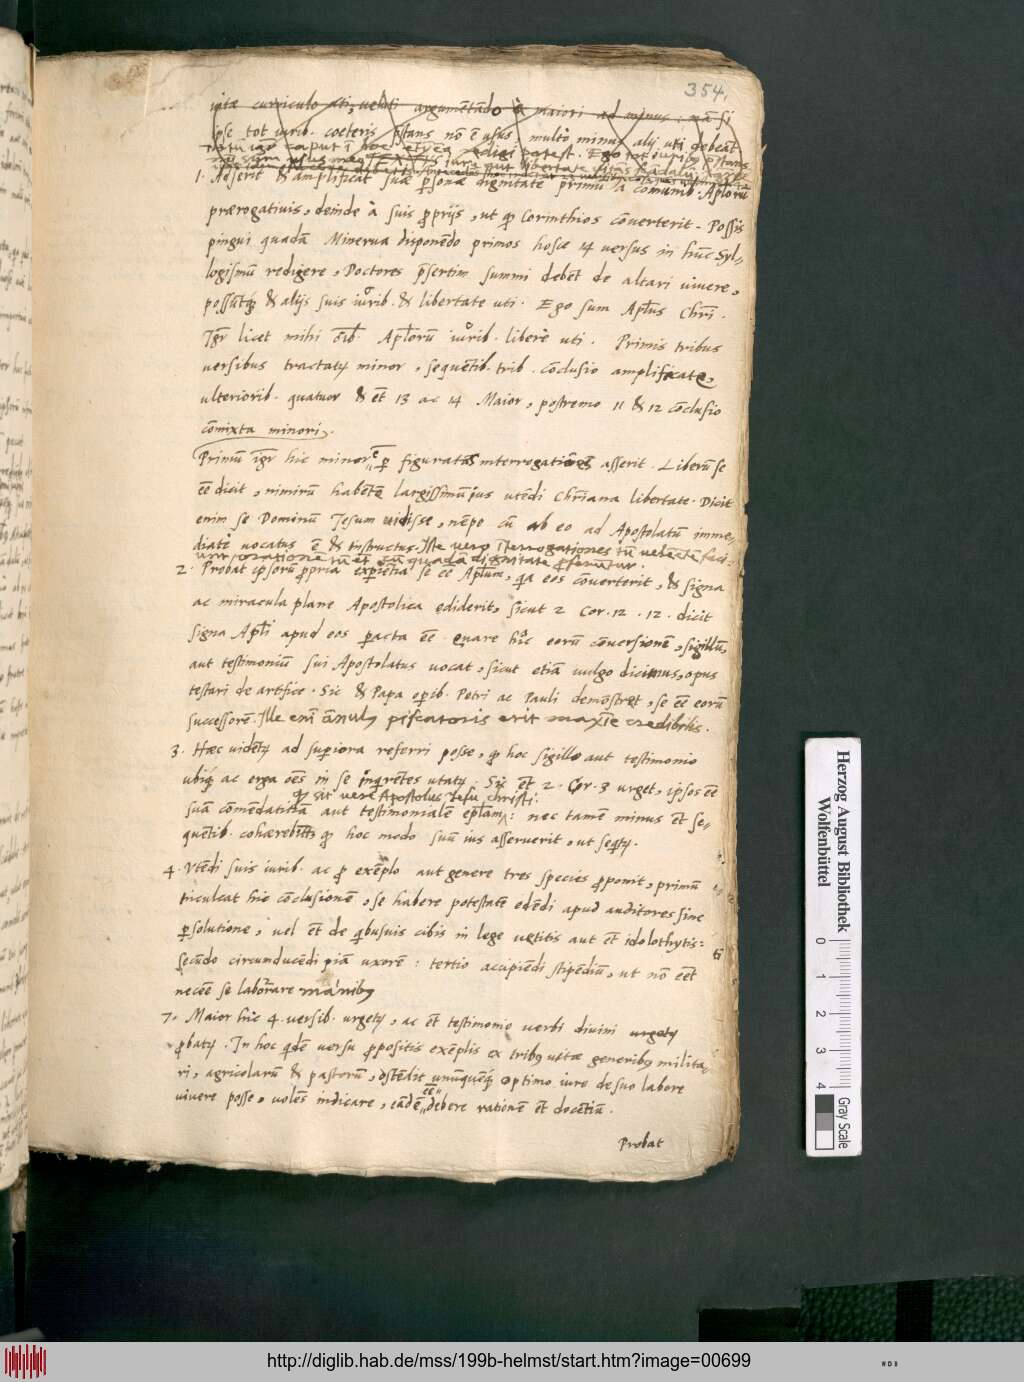 354.
vitæ curriculo uti, veluti argumētādo à maiori ad minus: nā si
ipse tot iurib. coeteris p̄stans nō ē usus, multo minus alij uti debeāt
caput ī hoc redigi potest. Ego tot iurib9 p̄stans
nō sum usus
1. Adserit & amplificat suæ p̄sonæ dignitatē primū à comunib. Aplorū
prærogativis, deinde à suis p̄prijs, ut q̄ Corinthios cōverterit. Possis
pingui quadā Minerva disponēdo primos hosce 14 versus in hūc Syl=
logismū redigere, Doctores p̄sertim summi debēt de altari vivere,
possūtq́ & alijs suis iurib. & libertate uti. Ego sum Apłus Chrī.
Igr̄ licet mihi oīb. Aplorū iurib. liberè uti. Primis tribus
versibus tractat9 minor, sequētib. trib. cōclusio amplificata,
ulteriorib. quatuor & ēt 13 ac 14 Maior, postremo 11 & 12 cōclusio
cōmixta minori.
Primū igr̄ hic minorē p̄ figuratas interrogatiōes asserit. Liberū se
eē dicit, nimirū habētē largissimū ius utēdi Chr̄iana libertate. Dicit
enim se Dominū Jesum vidisse, nēpe cū ab eo ad Apostolatū imme=
diatè vocatus ē & instructus. Iste vero īterrogationes tū
cū quadā dignitate p̄feruntur.
2. Probat ipsorū p̄pria experiētia se eē Apłum, q̄a eos cōverterit, & signa
ac miracula plane Apostolica ediderit, sicut 2 Cor. 12. 12. dicit
signa Apłi apud eos p̄acta eē. Quare hīc eorū cōversionē, sigillū,
aut testimoniū sui Apostolatus vocat, sicut etiā vulgo dicimus, opus
testari de artifice. Sic & Papa operib. Petri ac Pauli demōstret, se eē eorū
successorē. Ille enī ānul9 piscatoris erit maxīe credibilis.
3. Hæc vidēt9 ad superiora referri posse, q̄ hoc sigillo aut testimonio
ubiq́ ac erga oēs in se inq̄rētes utat9. Sic ēt 2. Cor. 3 urget, ipsos eē
q̄ sit vere Apostolus Jesu Christi.
suā cōmēdatitiā aut testimonialē epłam: nec tamē minus ēt se=
quētib. cohærebit q̄ hoc modo suū ius asserverit, ut seq̄t9.
4. Utēdi suis iurib. ac p̄ exēplo aut genere tres species p̄ponit, primū
inculcat hic cōclusionē, se habere potestatē edēdi apud auditores sine
p̄solutione, vel ēt de q̄busvis cibis in lege vetitis aut ēt idolothytis:
secūdo circunducēdi piā uxorē: tertio accipiēdi stipēdiū, ut nō eēt
necēe se laborare manib9
7. Maior hic 4. versib. urget9, ac ēt testimonio verbi divini urget9
p̄bat9. In hoc q̄dē versu p̄positis exēplis ex trib9 vitæ generib9 milita=
ri, agricolarū & pastorū, ostēdit unūquēq́ optimo iure de suo labore
vivere posse, volēs indicare, eādē eē debere rationē ēt docētiū.
Probat
Herzog August Bibliothek
Wolfenbüttel
0 1 2 3 4
Gray Scale
http://diglib.hab.de/mss/199b-helmst/start.htm?image=00699
WDB